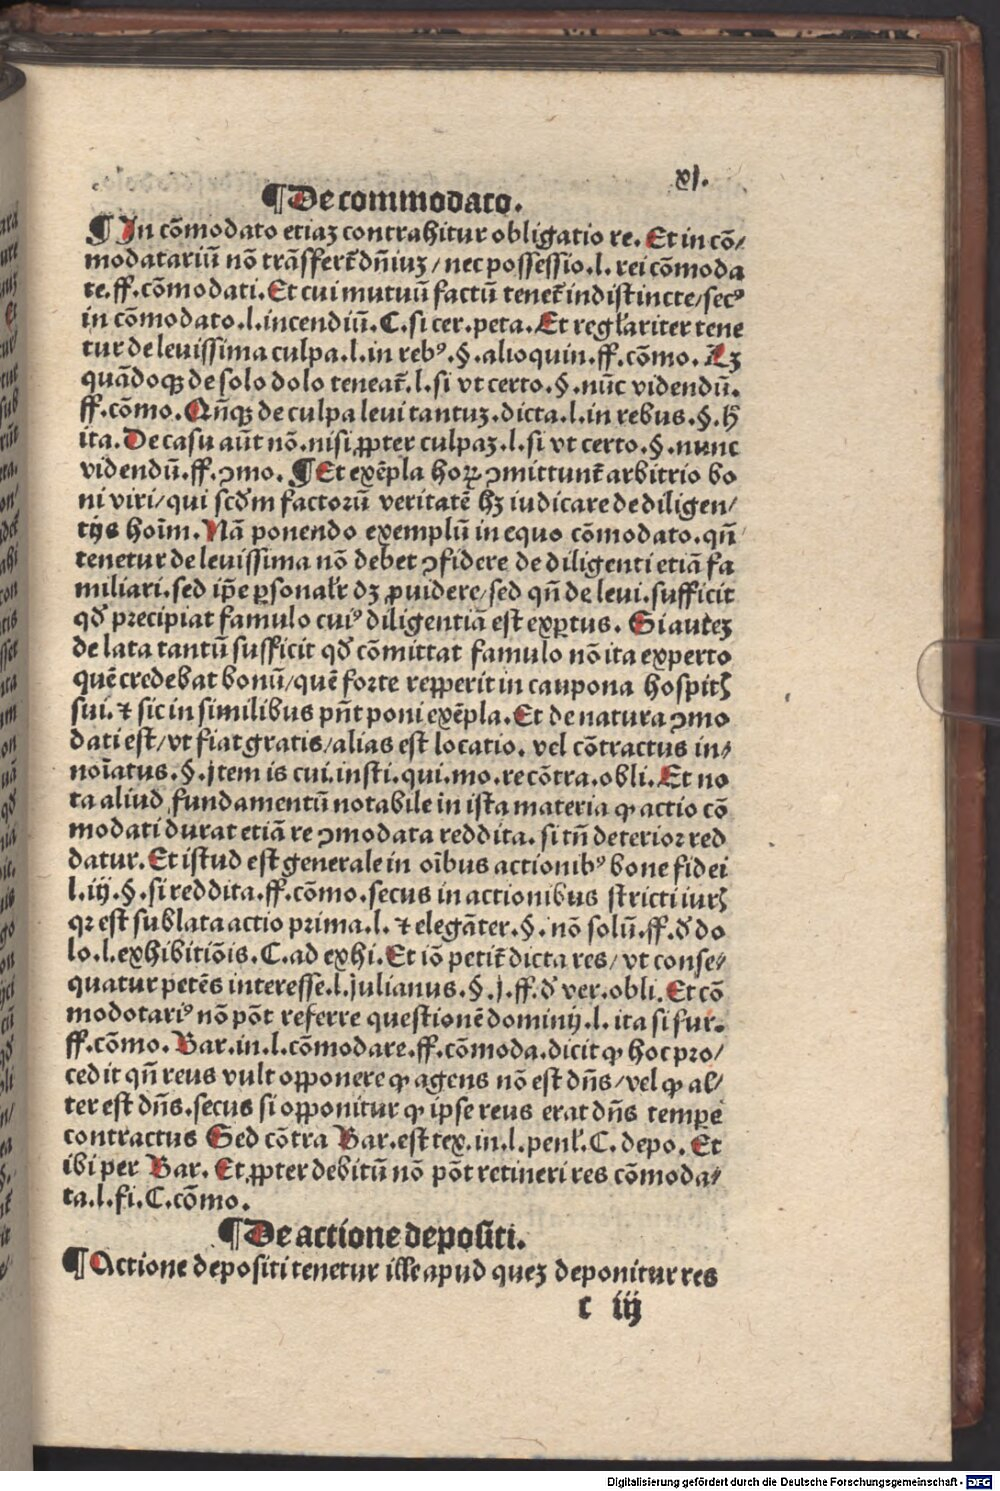 xj.
¶De commodato.
¶In cõmodato etiaꝫ contrahitur obligatio re. Et in cõ/
modatariũ nõ trãsfert᷑ dñiuꝫ/nec possessio.l. rei cõmoda
te.ff.cõmodati. Et cui mutuũ factũ tenet᷑ indistincte/secꝰ
in cõmodato.l.incendiũ.C.si cer.peta. Et regl̃ariter tene
tur de leuissima culpa.l.in rebꝰ.§.alioquin.ff.cõmo. Lꝫ
quãdoqꝫ de solo dolo teneat᷑.l.si vt certo.§.nũc videndũ.
ff.cõmo. Qñqꝫ de culpa leui tantuꝫ.dicta.l.in rebus.§.h̃
ita. De casu aũt nõ.nisi ꝓpter culpaꝫ.l.si vt certo.§.nunc
videndũ.ff.ꝯmo. ¶Et exẽpla hoꝝ ꝯmittunt᷑ arbitrio bo
ni viri/qui scd̃m factorũ veritatẽ hꝫ iudicare de diligen/
tijs hoĩm. Nã ponendo exemplũ in equo cõmodato.qñ
tenetur de leuissima nõ debet ꝯfidere de diligenti etiã fa
miliari.sed ip̃e ꝑsonal̃r dꝫ ꝓuidere/sed qñ de leui.sufficit
qd̃ precipiat famulo cuiꝰ diligentiã est exꝑtus. Si auteꝫ
de lata tantũ sufficit qd̃ cõmittat famulo nõ ita experto
quẽ credebat bonũ/quẽ forte repperit in caupona hospitꝭ
sui.⁊ sic in similibus pñt poni exẽpla. Et de natura ꝯmo
dati est/vt fiat gratis/alias est locatio. vel cõtractus in/
noĩatus.§.jtem is cui.insti.qui.mo.re cõtra.obli. Et no
ta aliud fundamentũ notabile in ista materia ꝙ actio cõ
modati durat etiã re ꝯmodata reddita. si tñ deterior red
datur. Et istud est generale in oĩbus actionibꝰ bone fidei
l.iij.§.si reddita.ff.cõmo.secus in actionibus stricti iurꝭ
qꝛ est sublata actio prima.l.⁊ elegãter.§.nõ solũ.ff.d̃ do
lo.l.exhibitiõis.C.ad exhi. Et iõ petit᷑ dicta res/vt conse/
quatur petẽs interesse.l.julianus.§.j.ff.d̃ ver.obli. Et cõ
modotariꝰ nõ põt referre questionẽ dominij.l.ita si fur.
ff.cõmo. Bar.in.l.cõmodare.ff.cõmoda.dicit ꝙ hoc pro/
cedit qñ reus vult opponere ꝙ agens nõ est dñs/vel ꝙ al/
ter est dñs.secus si opponitur ꝙ ipse reus erat dñs tempẽ
contractus Sed cõtra Bar.est tex.in.l.penl̃.C.depo. Et
ibi per Bar. Et ꝓpter debitũ nõ põt retineri res cõmoda/
ta.l.fi.C.cõmo.
¶De actione depositi.
¶Actione depositi tenetur ille apud queꝫ deponitur res
c iij
Digitalisierung gefördert durch die Deutsche Forschungsgemeinschaft - DFG